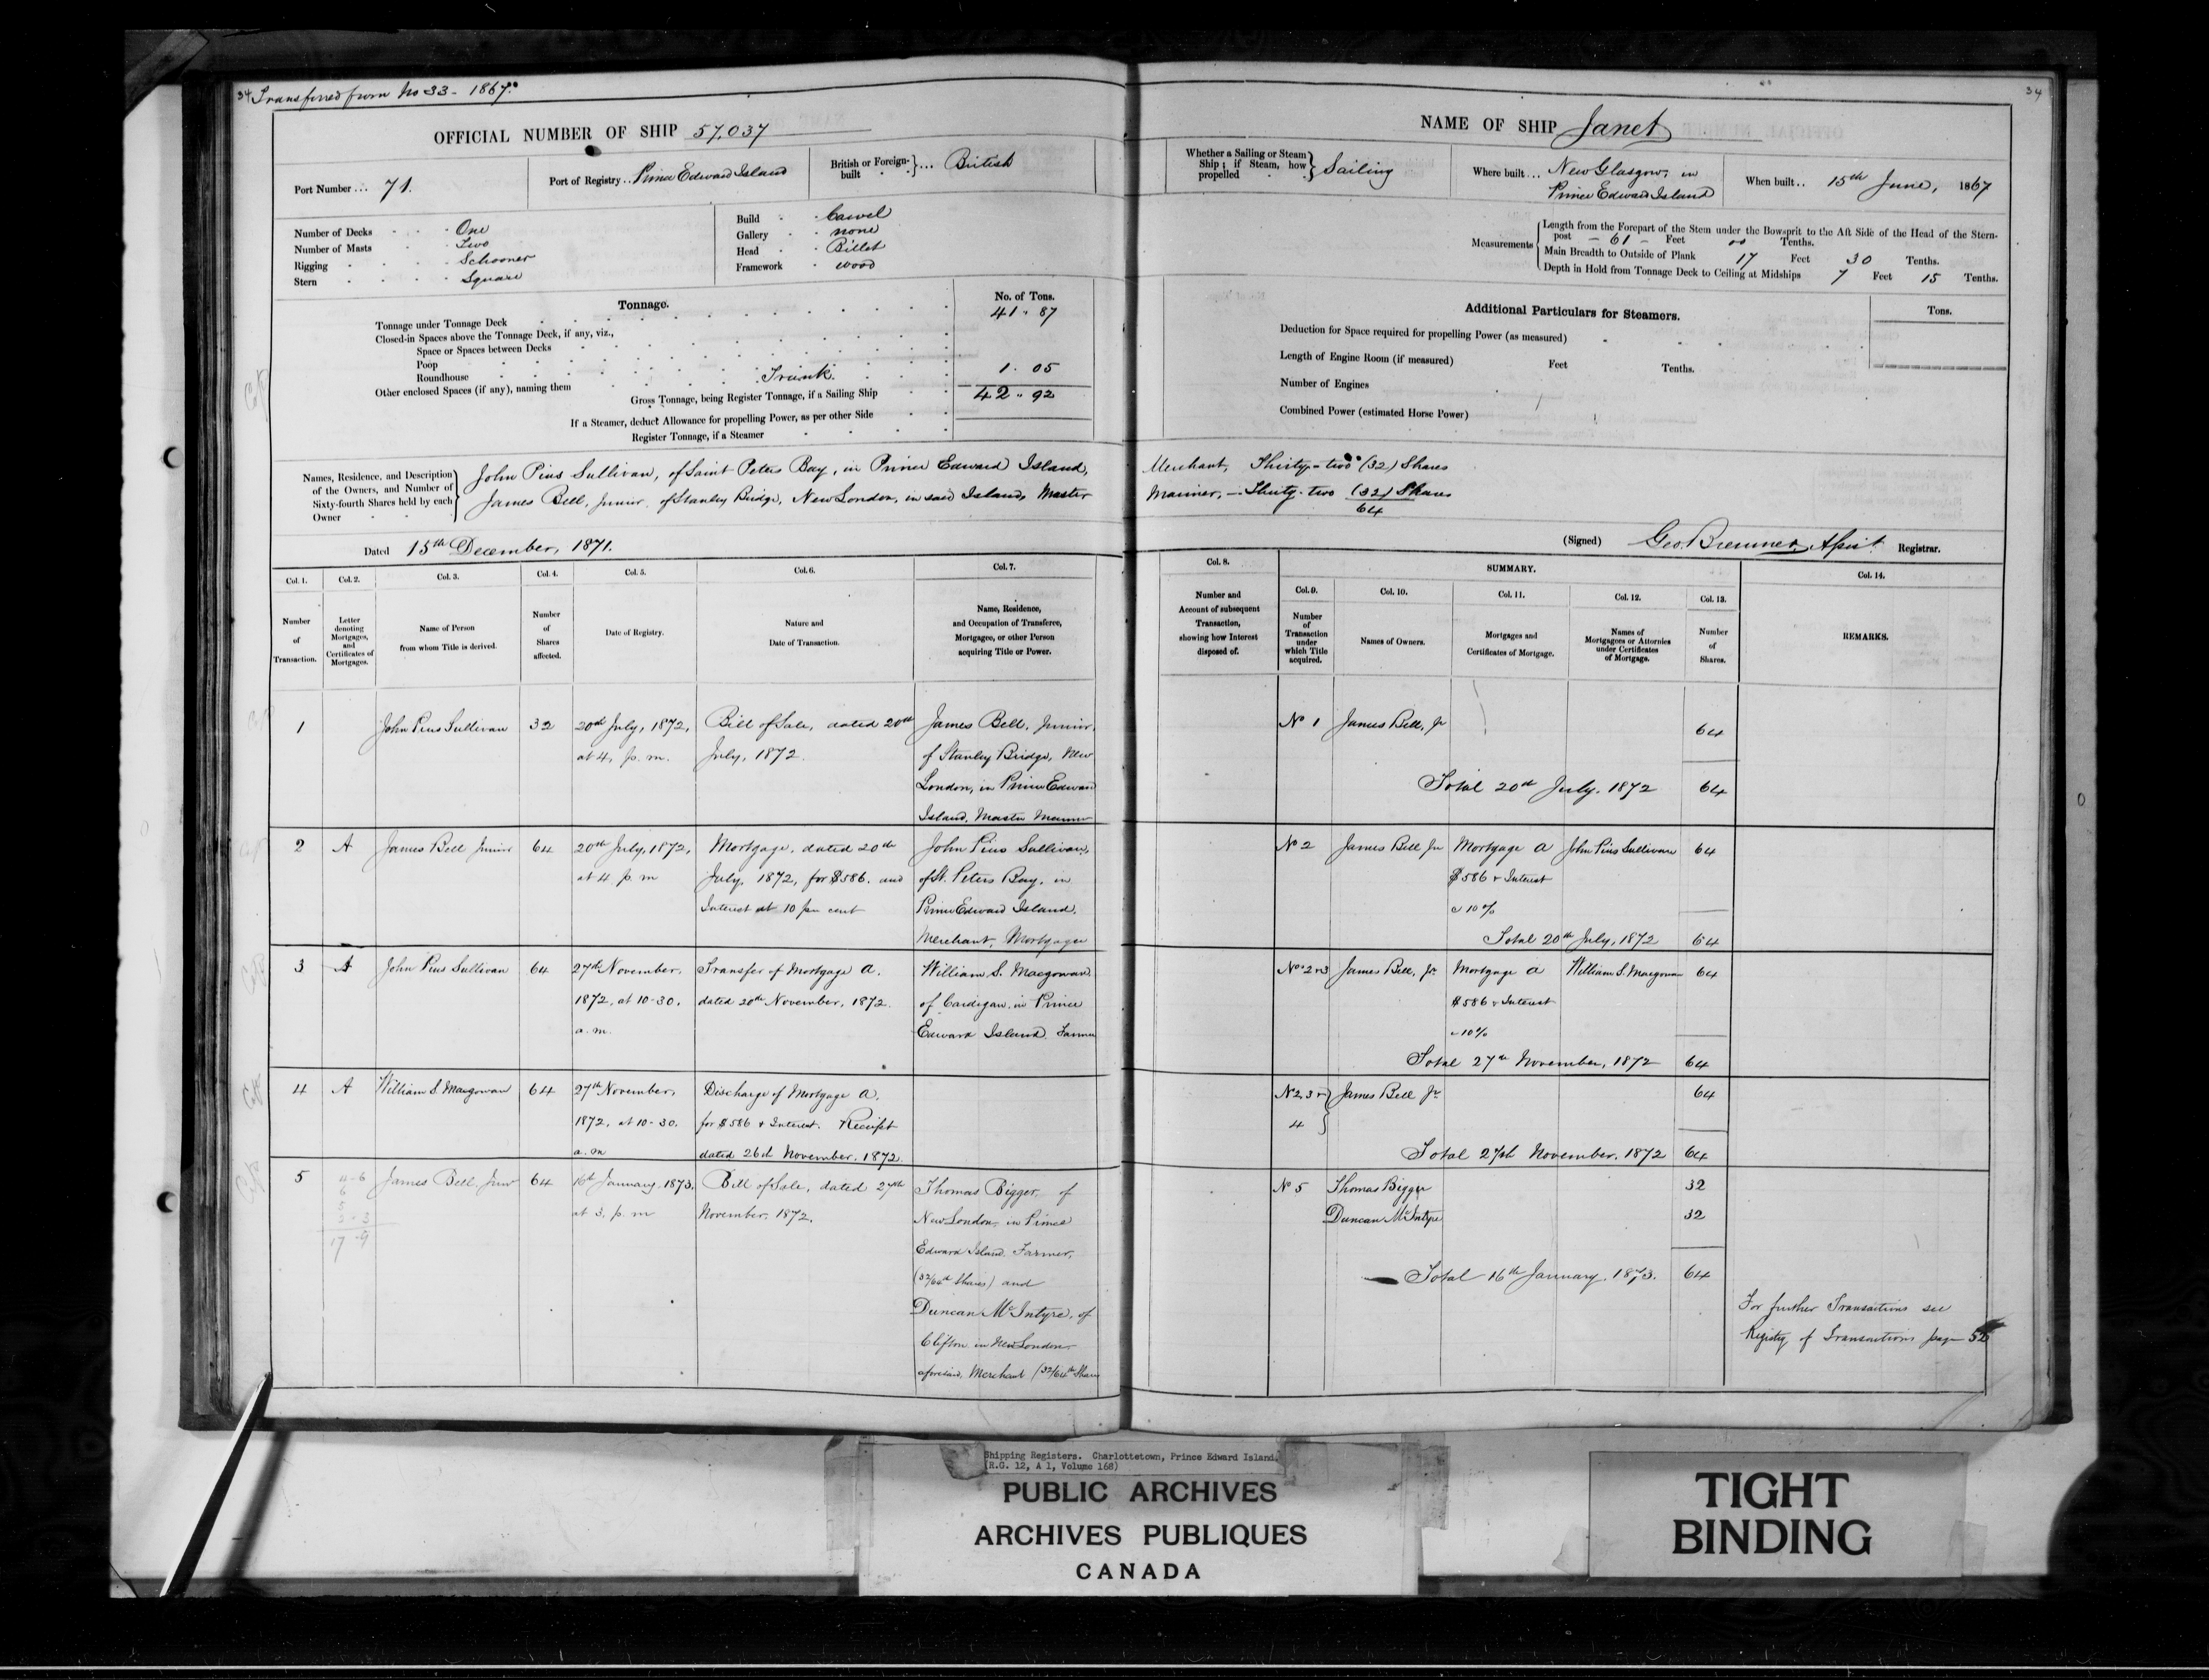 34 Transferred from No 33 - 1867.
OFFICIAL NUMBER OF SHIP 57,037
Port Number ... 71.
Port of Registry .. Prince Edward Island
British or Foreign-built } ... British
Number of Decks One
Number of Masts Two
Rigging Schooner
Stern Square
Build Carvel
Gallery none
Head Billet
Framework wood
Tonnage.
No. of Tons.
Tonnage under Tonnage Deck 41 " 87
Closed-in Spaces above the Tonnage Deck, if any, viz.,
Space or Spaces between Decks
Poop
Roundhouse
Other enclosed Spaces (if any), naming them Trunk. 1. 05
Gross Tonnage, being Register Tonnage, if a Sailing Ship 42 " 92
If a Steamer, deduct Allowance for propelling Power, as per other Side
Register Tonnage, if a Steamer
Names, Residence, and Description
of the Owners, and Number of
Sixty-fourth Shares held by each
Owner
John Pius Sullivan, of Saint Peters Bay, in Prince Edward Island,
James Bell, junior, of Stanley Bridge, New London, in said Island, Master
Dated 15th December, 1871.
Col. 1. Col. 2. Col. 3. Col. 4. Col. 5. Col. 6. Col. 7.
Number
of
Transaction.
Letter
denoting
Mortgages,
and
Certificates of
Mortgages.
Name of Person
from whom Title is derived.
Number
of
Shares
affected.
Date of Registry.
Nature and
Date of Transaction.
Name, Residence,
and Occupation of Transferee,
Mortgagee, or other Person
acquiring Title or Power.
1 John Pius Sullivan 32 20th July, 1872, Bill of Sale, dated 20th James Bell, Junior,
at 4, p. m. July, 1872. of Stanley Bridge, New
London, in Prince Edward
Island, Master Mariner
2 A James Bell Junior 64 20th July, 1872, Mortgage, dated 20th John Pius Sullivan,
at 4 p. m July, 1872, for $586. and of St. Peters Bay, in
Interest at 10 per cent Prince Edward Island,
Merchant, Mortgagee
3 A John Pius Sullivan 64 27th November, Transfer of Mortgage A. William S. Macgowan
1872, at 10-30, dated 20th November, 1872. of Cardigan, in Prince
a. m. Edward Island Farmer
4 A William S Macgowan 64 27th November, Discharge of Mortgage A.
1872, at 10-30, for $586 & Interest. Receipt
a. m dated 26th November, 1872.
5 James Bell, Junr 64 16th January, 1873, Bill of Sale, dated 27th Thomas Bigger, of
at 3, p. m November, 1872. New London, in Prince
Edward Island, Farmer,
(32/64th Shares) and
Duncan McIntyre, of
Clifton in New London
aforesaid, Merchant (32/64th Shares
34
NAME OF SHIP Janet
Whether a Sailing or Steam
Ship; if Steam, how
propelled
Sailing
Where built ... New Glasgow, in
Prince Edward Island
When built .. 15th June, 1867
Measurements
Length from the Forepart of the Stem under the Bowsprit to the Aft Side of the Head of the Stern-
post - 61 - Feet 00 Tenths.
Main Breadth to Outside of Plank 17 Feet 30 Tenths.
Depth in Hold from Tonnage Deck to Ceiling at Midships 7 Feet 15 Tenths.
Additional Particulars for Steamers.
Tons.
Deduction for Space required for propelling Power (as measured)
Length of Engine Room (if measured) Feet Tenths.
Number of Engines
Combined Power (estimated Horse Power)
Merchant, Thirty-two (32) Shares
Mariner, - Thirty-two (32) Shares
64
(Signed) Geo. Bremner, Registrar.
Col. 8. SUMMARY. Col. 14.
Col. 9. Col. 10. Col. 11. Col. 12. Col. 13.
Number and
Account of subsequent
Transaction,
showing how Interest
disposed of.
Number
of
Transaction
under
which Title
acquired.
Names of Owners.
Mortgages and
Certificates of Mortgage.
Names of
Mortgagees or Attornies
under Certificates
of Mortgage.
Number
of
Shares.
REMARKS.
No 1 James Bell, Jr 64
Total 20th July, 1872 64
No 2 James Bell Jr Mortgage A John Pius Sullivan 64
$586 & Interest
@ 10%
Total 20th July, 1872 64
No 2 & 3 James Bell, Jr. Mortgage A William S. Macgowan 64
$586 & Interest
@ 10%
Total 27th November, 1872 64
No 2, 3 & James Bell Jr. 64
4
Total 27th November, 1872 64
No 5 Thomas Bigger 32
Duncan McIntyre 32
Total 16th January, 1873. 64
For further Transactions see
Registry of Transactions page 52
Shipping Registers. Charlottetown, Prince Edward Island.
(R.G. 12, A 1, Volume 168)
PUBLIC ARCHIVES
ARCHIVES PUBLIQUES
CANADA
TIGHT
BINDING